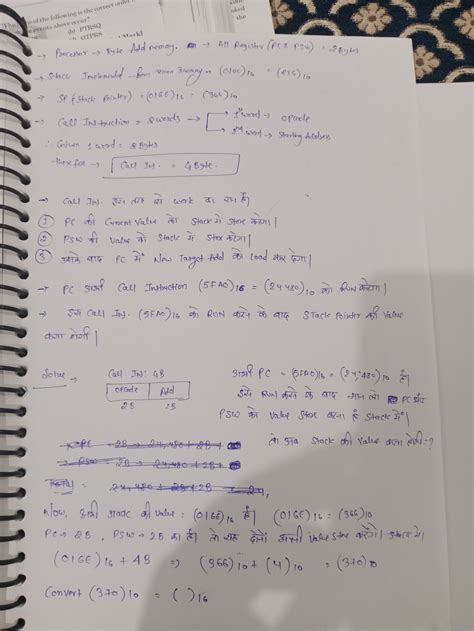 of the following is the correct order
events above occur?
(b) PTRSQ
(d) OTPRS
→ Processor → Byte Add memory. → All Register (PC & PSW) = 2Bytes
→ Stack Implemented from memory → (0100)16 = (256)10
→ SP (Stack Pointer) = (016E)16 = (366)10
→ Call Instruction = 2 words → 1st word → opcode
2nd word → Starting Address
∴ Given 1 word = 2 Bytes
therefor → Call In. = 4 Byte.
→ Call In. इस तरह से work कर रहा है।
① PC की Current Value को Stack में Store करेगा।
② PSW की Value को Stack में Store करेगा।
③ उसके बाद PC में New Target Add को Load कर देगा।
→ PC अभी Call Instruction (5FA0)16 = (24480)10 को Run करेगा।
→ इस Call In. (5FA0)16 को RUN करने के बाद Stack Pointer की Value
क्या होगी।
Solve → Call IN: 4B
opcode Add
2B 2B
अभी PC = (5FA0)16 = (24,480)10 है।
इसे Run करने के बाद मान लो PC और
PSW को Value Store करना है Stack में।
तो अब Stack की Value क्या होगी-?
→ PC → 2B → 24,480 + 2B →
→ PSW → 2B → 24,480 + 2B →
24,480 + 2B + 2B →
Now, अभी Stack की Value = (016E)16 है। (016E)16 = (366)10
PC → 2B, PSW → 2B का है। तो यह दोनों अपनी Value Store करेंगे। Stack में।
(016E)16 + 4B => (366)10 + (4)10 = (370)10
Convert (370)10 = ( )16